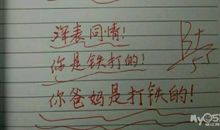 深表同情！
你是铁打的！
你爸妈是打铁的！
B+
55
MyOS